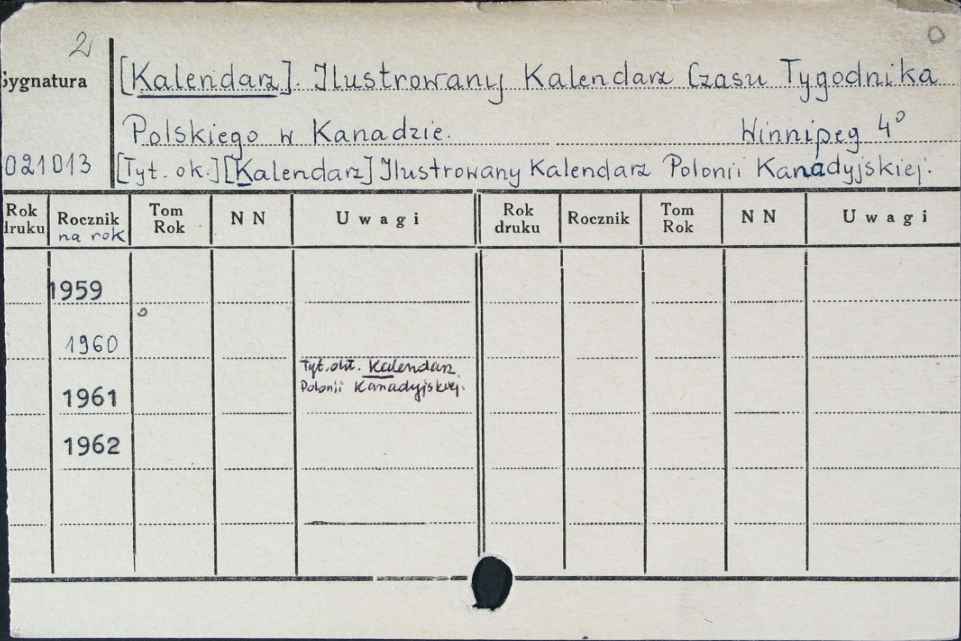 2
Sygnatura [Kalendarz]. Ilustrowany Kalendarz Czasu Tygodnika
Polskiego w Kanadzie. Winnipeg 4°
021013 [Tyt. ok.] [Kalendarz] Ilustrowany Kalendarz Polonii Kanadyjskiej.
Rok druku Rocznik na rok Tom Rok N N Uwagi Rok druku Rocznik Tom Rok N N Uwagi
1959
1960
Tyt. okł. Kalendarz
Polonii Kanadyjskiej.
1961
1962